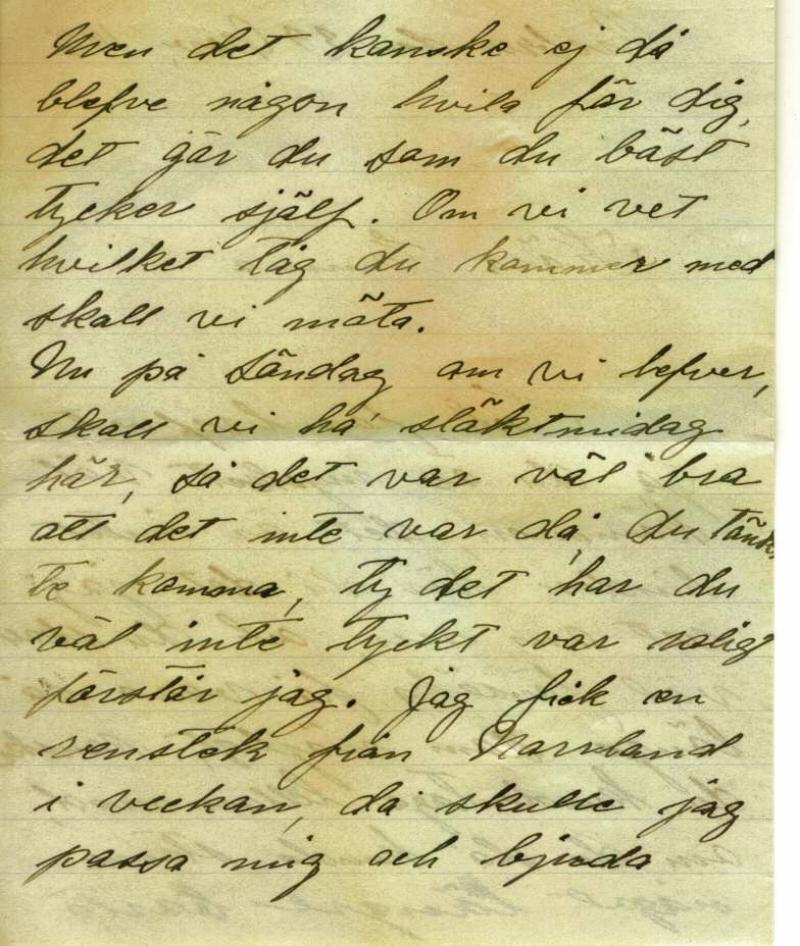 Men det kanske ej då
blefve någon hvila för dig,
det gör du som du bäst
tycker själf. Om vi vet
hvilket tåg du kommer med
skall vi möta.
Nu på Söndag om vi lefver,
skall vi ha släktmidag
här, så det var väl bra
att det inte var då, du tänk
te komma, ty det har du
väl inte tyckt var roligt
förstår jag. Jag fick en
renstek från Norrland
i veckan, då skulle jag
passa mig och bjuda